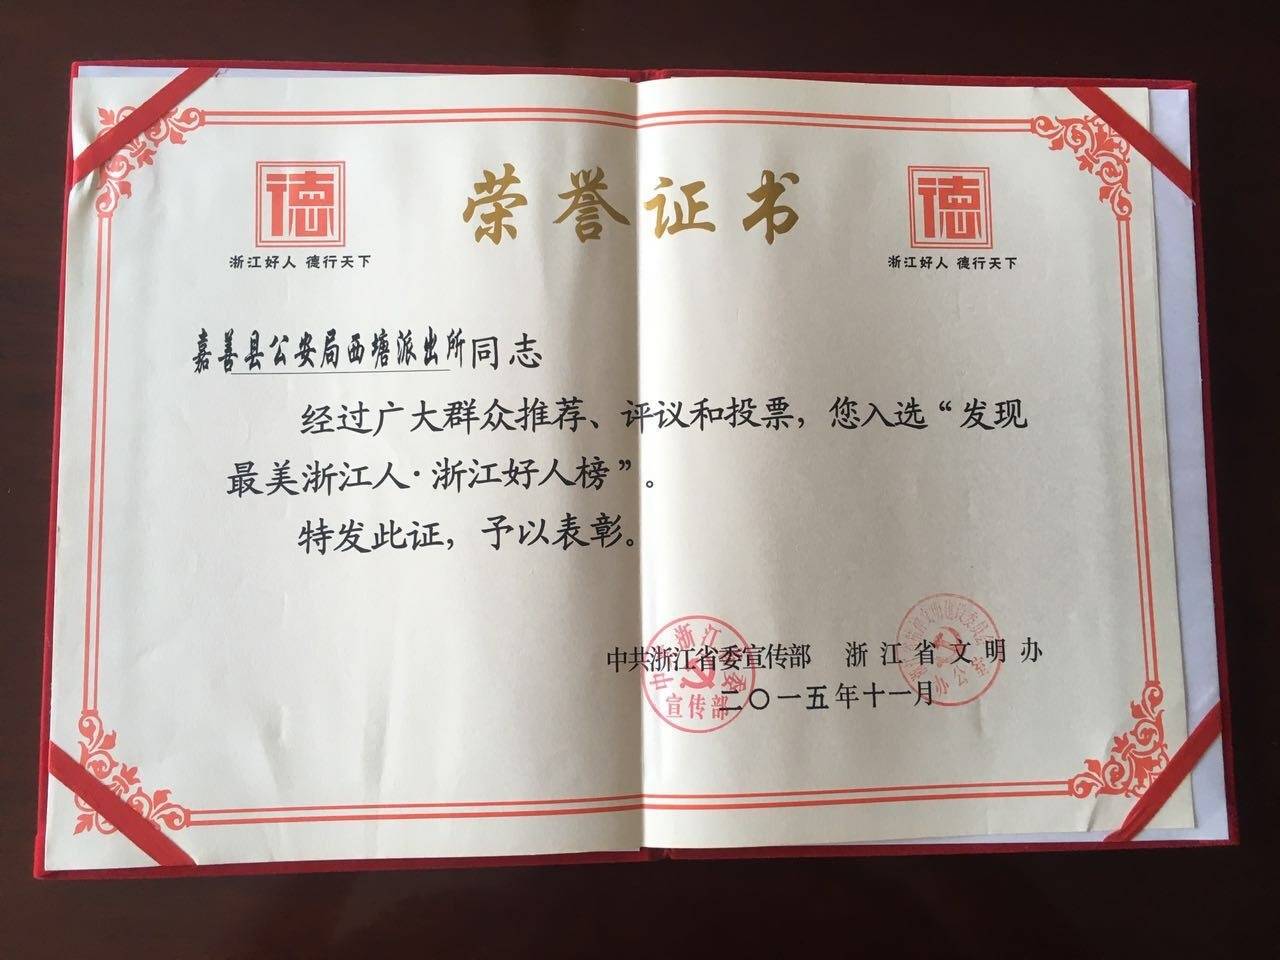 荣誉证书
德
浙江好人 德行天下
德
浙江好人 德行天下
嘉善县公安局西塘派出所同志
经过广大群众推荐、评议和投票，您入选“发现
最美浙江人·浙江好人榜”。
特发此证，予以表彰。
中共浙江省委宣传部 浙江省文明办
二〇一五年十一月
中共浙江省委
宣传部
办公室